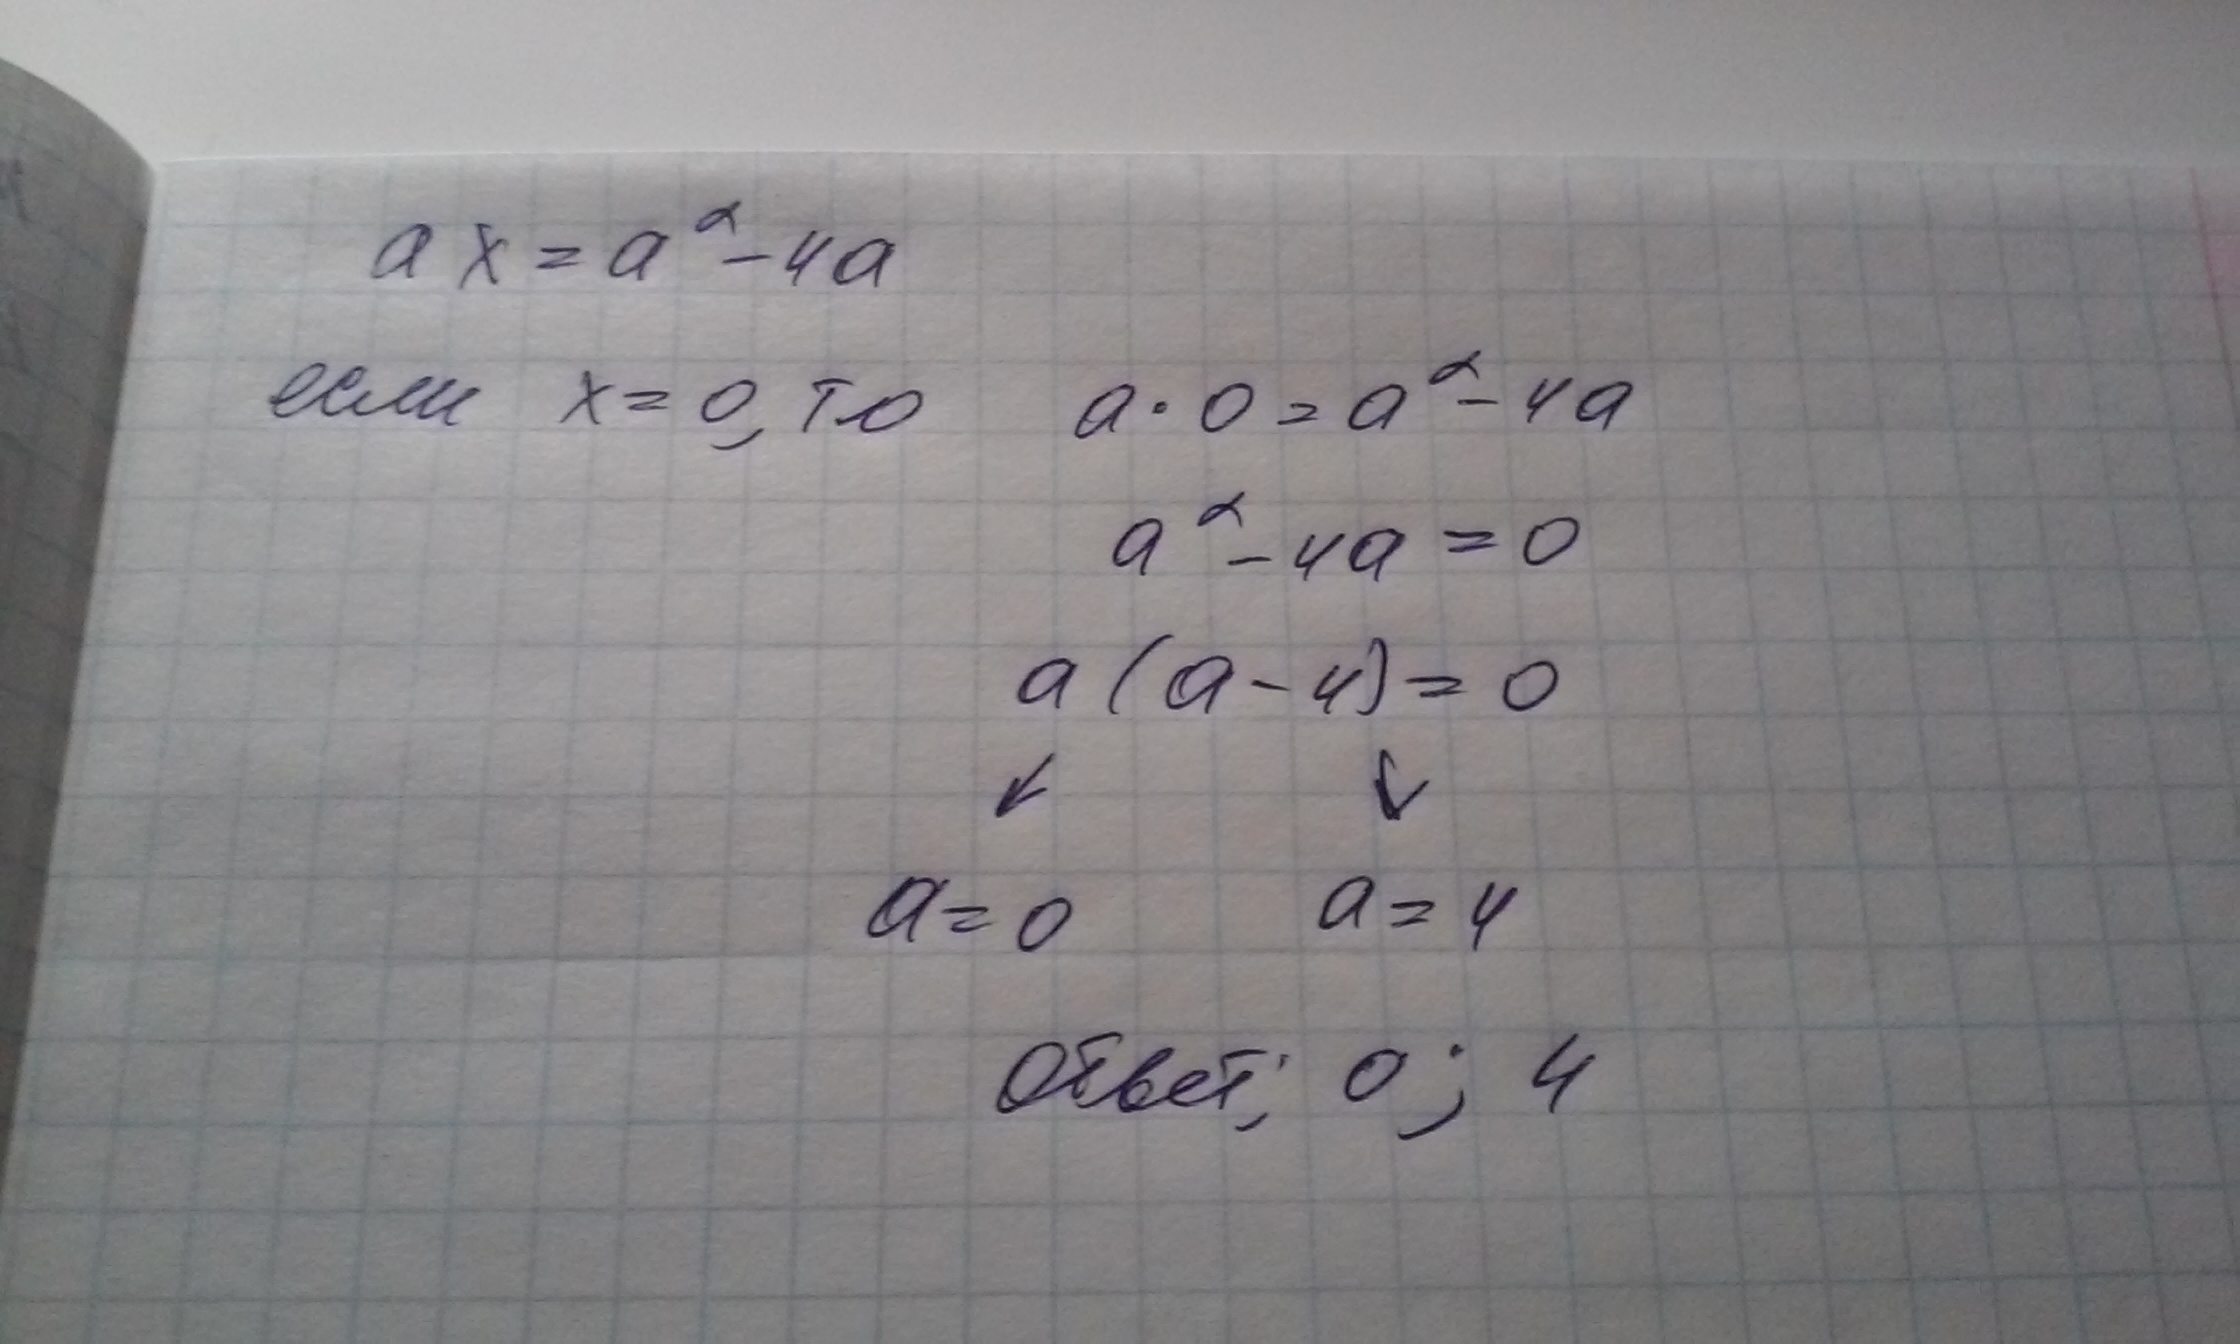 ax = a² - 4a
если x = 0, то a · 0 = a² - 4a
a² - 4a = 0
a (a - 4) = 0
↙ ↘
a = 0 a = 4
Ответ: 0; 4